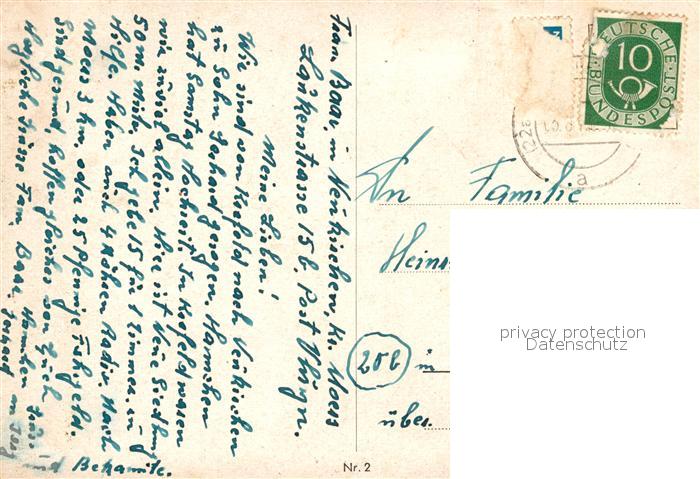 Fam. Baar, in Neukirchen, Kr. Moers
Lankenstrasse 15 b. Post Vluyn.
Meine Lieben!
Wir sind von Krefeld nach Neukirchen
zu Sohn Gerhard gezogen. Hannchen
hat Samstag Hochzeit. In Krefeld waren
wir zuviel allein. Hier ist Neue Siedlung
50 m Milch. ich gebe 15 für 1 Zimmer. in
Hilfe. Haben auch 4 Nähen Radio. Nach
Moers 3 km. oder 25 Pfennige Fahrgeld.
Sind gesund, hoffen gleiches von Euch
Herzliche Grüsse Fam. Baar, Hannchen
Gerhard
und Bekannte.
DEUTSCHE BUNDESPOST
10
22a
a
An Familie
Hein
20b in
über
Nr. 2
privacy protection
Datenschutz